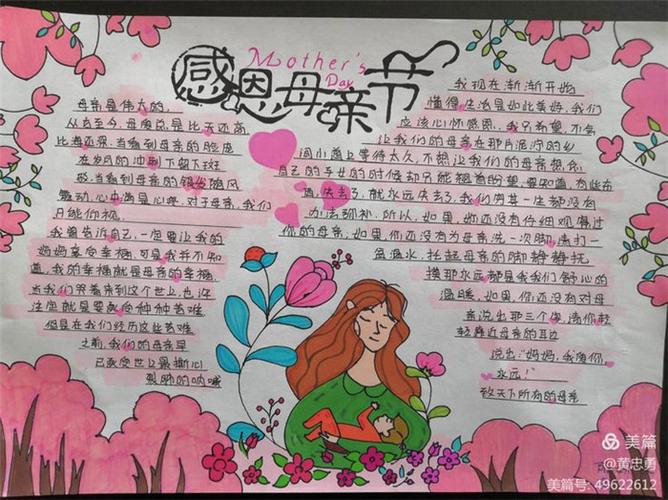 Mother's
Day
感恩母亲节
母亲是伟大的,
从古至今,母爱总是比天还高,
比海还深,当看到母亲的脸庞
在岁月的冲刷下留下斑
驳,当看到母亲的银发随风
飘动,心中满是心疼,对于母亲,我们
只能仰视,
我曾告诉自己,一定要让我的
妈妈享受幸福,可是我并不知
道,我的幸福就是母亲的幸福,
当我们哭着来到这个世上,也许
注定就是要受种种苦难,
但是在我们经历这些苦难
之前,我们的母亲早
已承受世上最撕心
裂肺的呐喊
我现在渐渐开始
懂得生活是如此美好,我们
应该心怀感恩,我只希望,不会
让我们的母亲在那片泥泞的乡
间小道上等待太久,不想让我们的母亲想念
自己的子女的时候却只能翘首盼望,要知道,有些东
西,失去了,就永远失去了,我们用其一生都没有
办法弥补,所以,如果,你还没有仔细观看过
你的母亲,如果,你还没有为母亲洗一次脚,请打一
盆温水,托起母亲的脚静静抚
摸那永远都是我们舒心的
温暖,如果,你还没有对母
亲说出那三个字,请你轻
轻靠近母亲的耳边
说出:“妈妈,我爱你,
永远!”
致天下所有的母亲
美篇
@黄忠勇
美篇号: 49622612